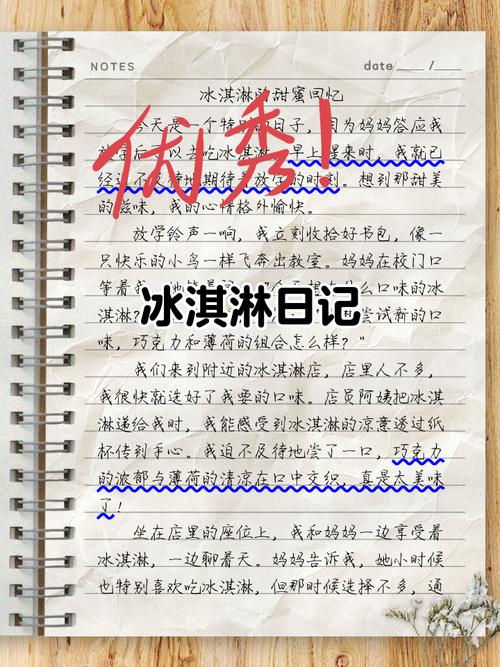 NOTES
date ____ / ____
冰淇淋的甜蜜回忆
今天是一个特别的日子，因为妈妈答应我
放学后可以去吃冰淇淋。早上醒来时，我就已
经迫不及待地期待着放学的时刻。想到那甜美
的滋味，我的心情格外愉快。
优秀！
放学铃声一响，我立刻收拾好书包，像一
只快乐的小鸟一样飞奔出教室。妈妈在校门口
等着我，么口味的冰
冰淇淋日记
淇淋？尝试新的口
味，巧克力和薄荷的组合怎么样？"
我们来到附近的冰淇淋店，店里人不多，
我很快就选好了我要的口味。店员阿姨把冰淇
淋递给我时，我能感受到冰淇淋的凉意透过纸
杯传到手心。我迫不及待地尝了一口，巧克力
的浓郁与薄荷的清凉在口中交织，真是太美味
了！
坐在店里的座位上，我和妈妈一边享受着
冰淇淋，一边聊着天。妈妈告诉我，她小时候
也特别喜欢吃冰淇淋，但那时候选择不多，通